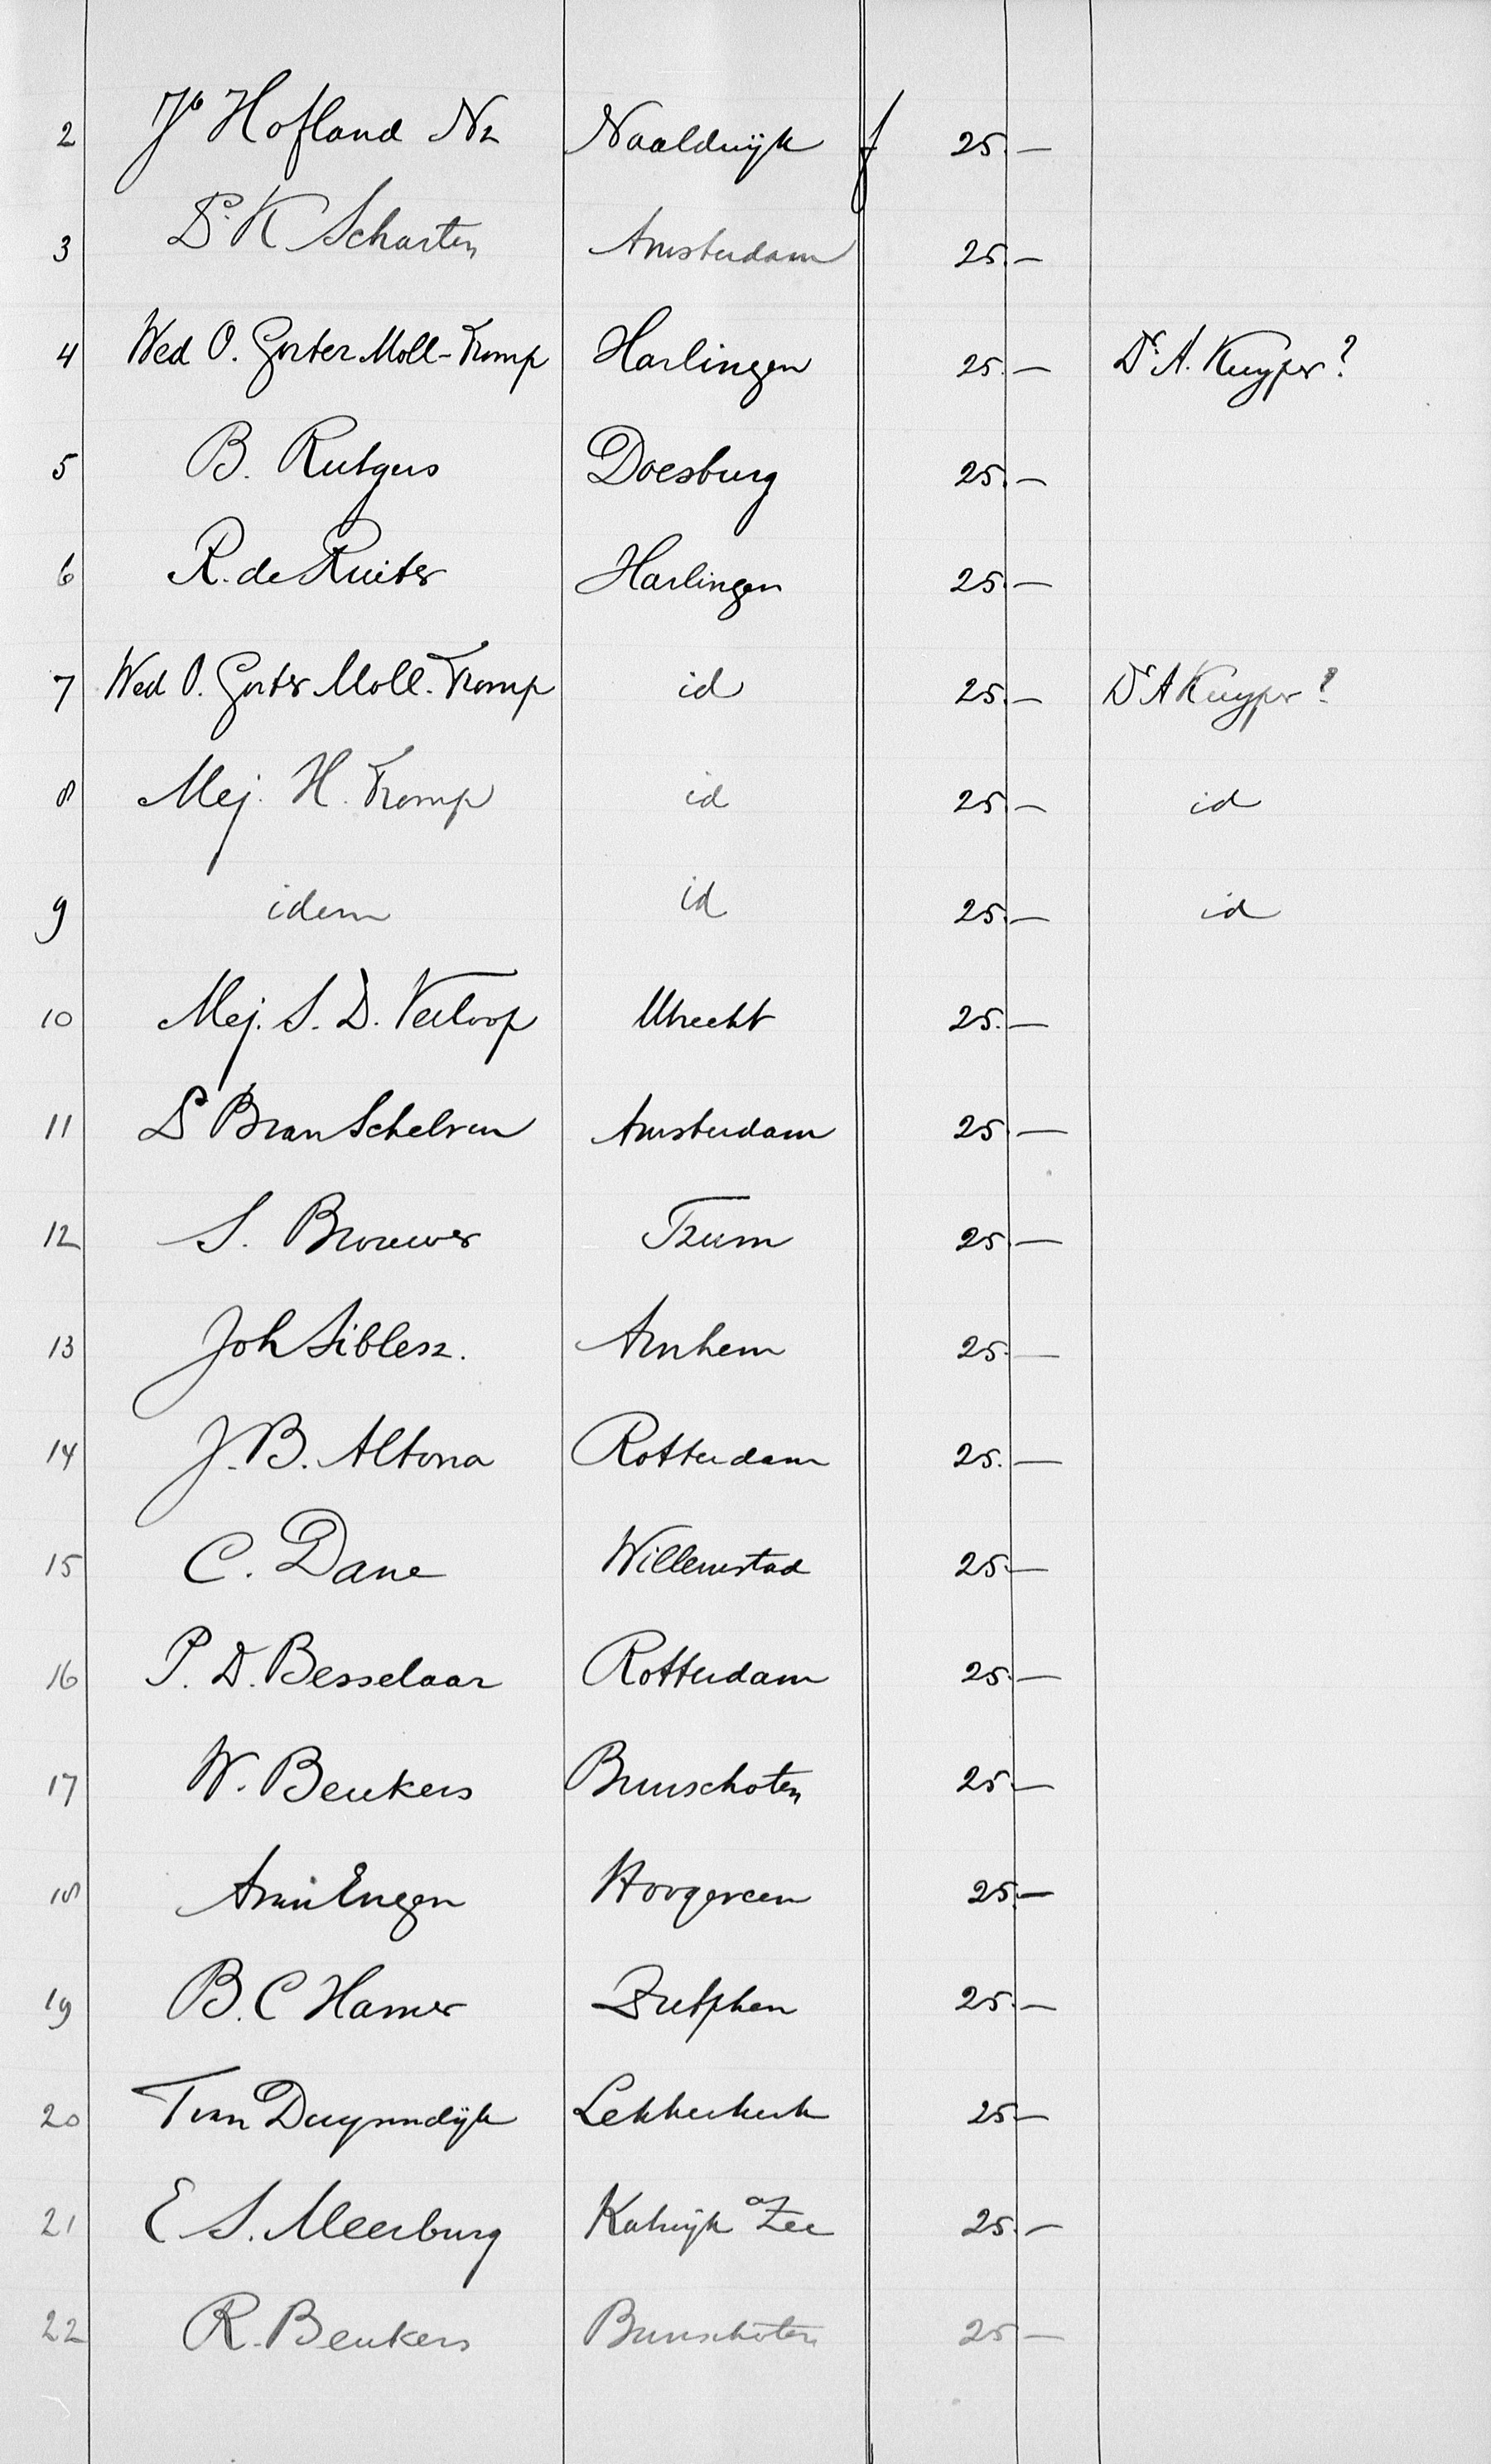 2 Jb Hofland Nz Naaldwijk f 25.—
3 Ds. K Scharten Amsterdam 25.—
4 Wed O. Gorter Moll-Tromp Harlingen 25.— Dr. A. Kuyper?
5 B. Rutgers Doesburg 25.—
6 R. de Ruiter Harlingen 25.—
7 Wed O. Gorter Moll-Tromp id 25.— Dr A Kuyper?
8 Mej. H. Tromp id 25.— id
9 idem id 25.— id
10 Mej. S. D. Verloop Utrecht 25.—
11 Ds B van Schelven Amsterdam 25.—
12 S. Brouwer Tzum 25.—
13 Joh Siblesz. Arnhem 25.—
14 J. B. Altona Rotterdam 25.—
15 C. Dane Willemstad 25.—
16 P. D. Besselaar Rotterdam 25.—
17 W. Beukers Bunschoten 25.—
18 Hoogeveen 25.—
19 B. C Hamer Zutphen 25.—
20 T van Duyvendijk Lekkerkerk 25.—
21 E S. Meerburg Katwijk a Zee 25.—
22 R. Beukers Bunschoten 25.—